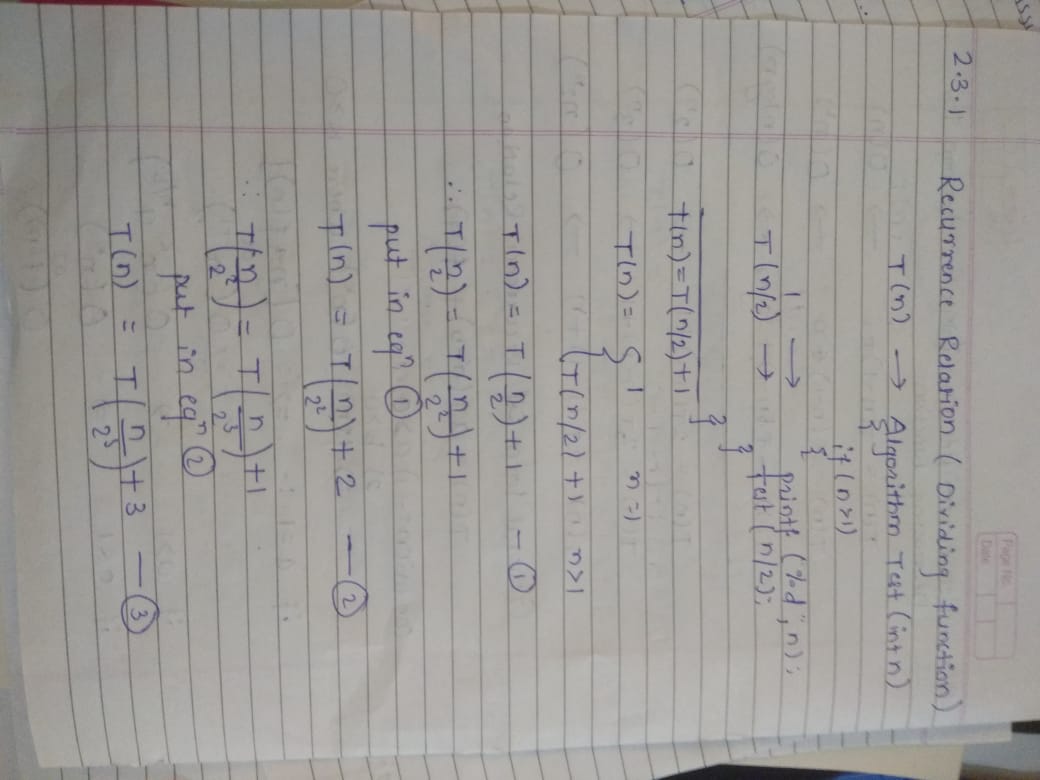 Page No.
Date
2.3.1 Recurrence Relation ( Dividing function)
T(n) → Algorithm Test (int n)
{
if (n>1)
{
1 → printf ("%d", n);
T(n/2) → test (n/2);
}
}
T(n) = T(n/2)+1
T(n) = { 1 n=1
T(n/2)+1 n>1
T(n) = T(n/2)+1 — ①
∴ T(n/2) = T(n/2²)+1
put in eqⁿ ①
T(n) = T(n/2²)+2 — ②
∵ T(n/2²) = T(n/2³)+1
put in eqⁿ ②
T(n) = T(n/2³)+3 — ③